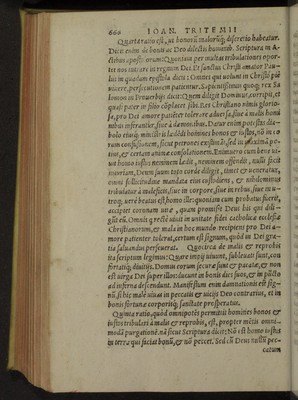 660 IOAN. TRITEMII
Quarta ratio est, ut bonorũ malorũq; discretio habeatur.
Dicit enim de bonis ac Deo dilectis hominibus Scriptura in A-
ctibus apostolorum: Quoniam per multas tribulationes opor-
tet nos intrare in regnum Dei. Et sanctus Christi amator Pau-
lus in quadam epistola dicit: Omnes qui uolunt in Christo piè
uiuere, persecutionem patientur. Sapientissimus quoq; rex Sa
lomon in Prouerbijs dicit: Quem diligit Dominus, corripit, et
quasi pater in filio cõplacet sibi. Res Christiano nimis glorio-
sa, pro Dei amore patienter tolerare aduersa, siue à malis homi
nibus inferantur, siue à dæmonibus. Datur enim potestas dia-
bolo eiusq; ministris lædendi homines bonos et iustos, nõ in eo
rum confusionem, sicut peruersi existimãt, sed in maxima po-
tius, et certam animæ consolationem. Etenim cum bene ui-
uit homo iustus neminem lædit, neminem offendit, nulli facit
iniuriam, Deum suum toto corde diligit, timet et ueneratur,
omni sollicitudine mandata eius custodiens, et nihilominus
tribulatur à maleficis, siue in corpore, siue in rebus, siue in u-
troq;, uerè beatus est homo ille: quoniam cum probatus fuerit,
accipiet coronam uitæ, quam promisit Deus his qui dili-
gũt eũ. Omnis q rectè uiuit in unitate fidei catholicæ ecclesiæ
Christianorum, et mala in hoc mundo recipiens pro Dei a-
more patienter tolerat, certum est signum, quòd in Dei gra-
tia saluandus perseuerat. Quocirca de malis et reprobis
ita scriptum legimus: Quare impij uiuunt, subleuati sunt, con
fortatiq; diuitijs. Domus eorum securæ sunt et pacatæ, et non
est uirga Dei super illos: ducunt in bonis dies suos, et in pũcto
ad inferna descendunt. Manifestum enim damnationis est sig-
nũ, si hic malè uiuas in peccatis et uitijs Deo contrarius, et in
bonis fortunæ corporisq; sanitate prosperatus.
Quinta ratio, quòd omnipotẽs permittit homines bonos et
iustos tribulari à malis et reprobis, est, propter mẽtis omni-
modã purgationẽ. nã sicut Scriptura dicit: Nõ est homo iustus
in terra qui faciat bonũ, et nõ peccet. Sed cũ Deus nullũ pec-
catum